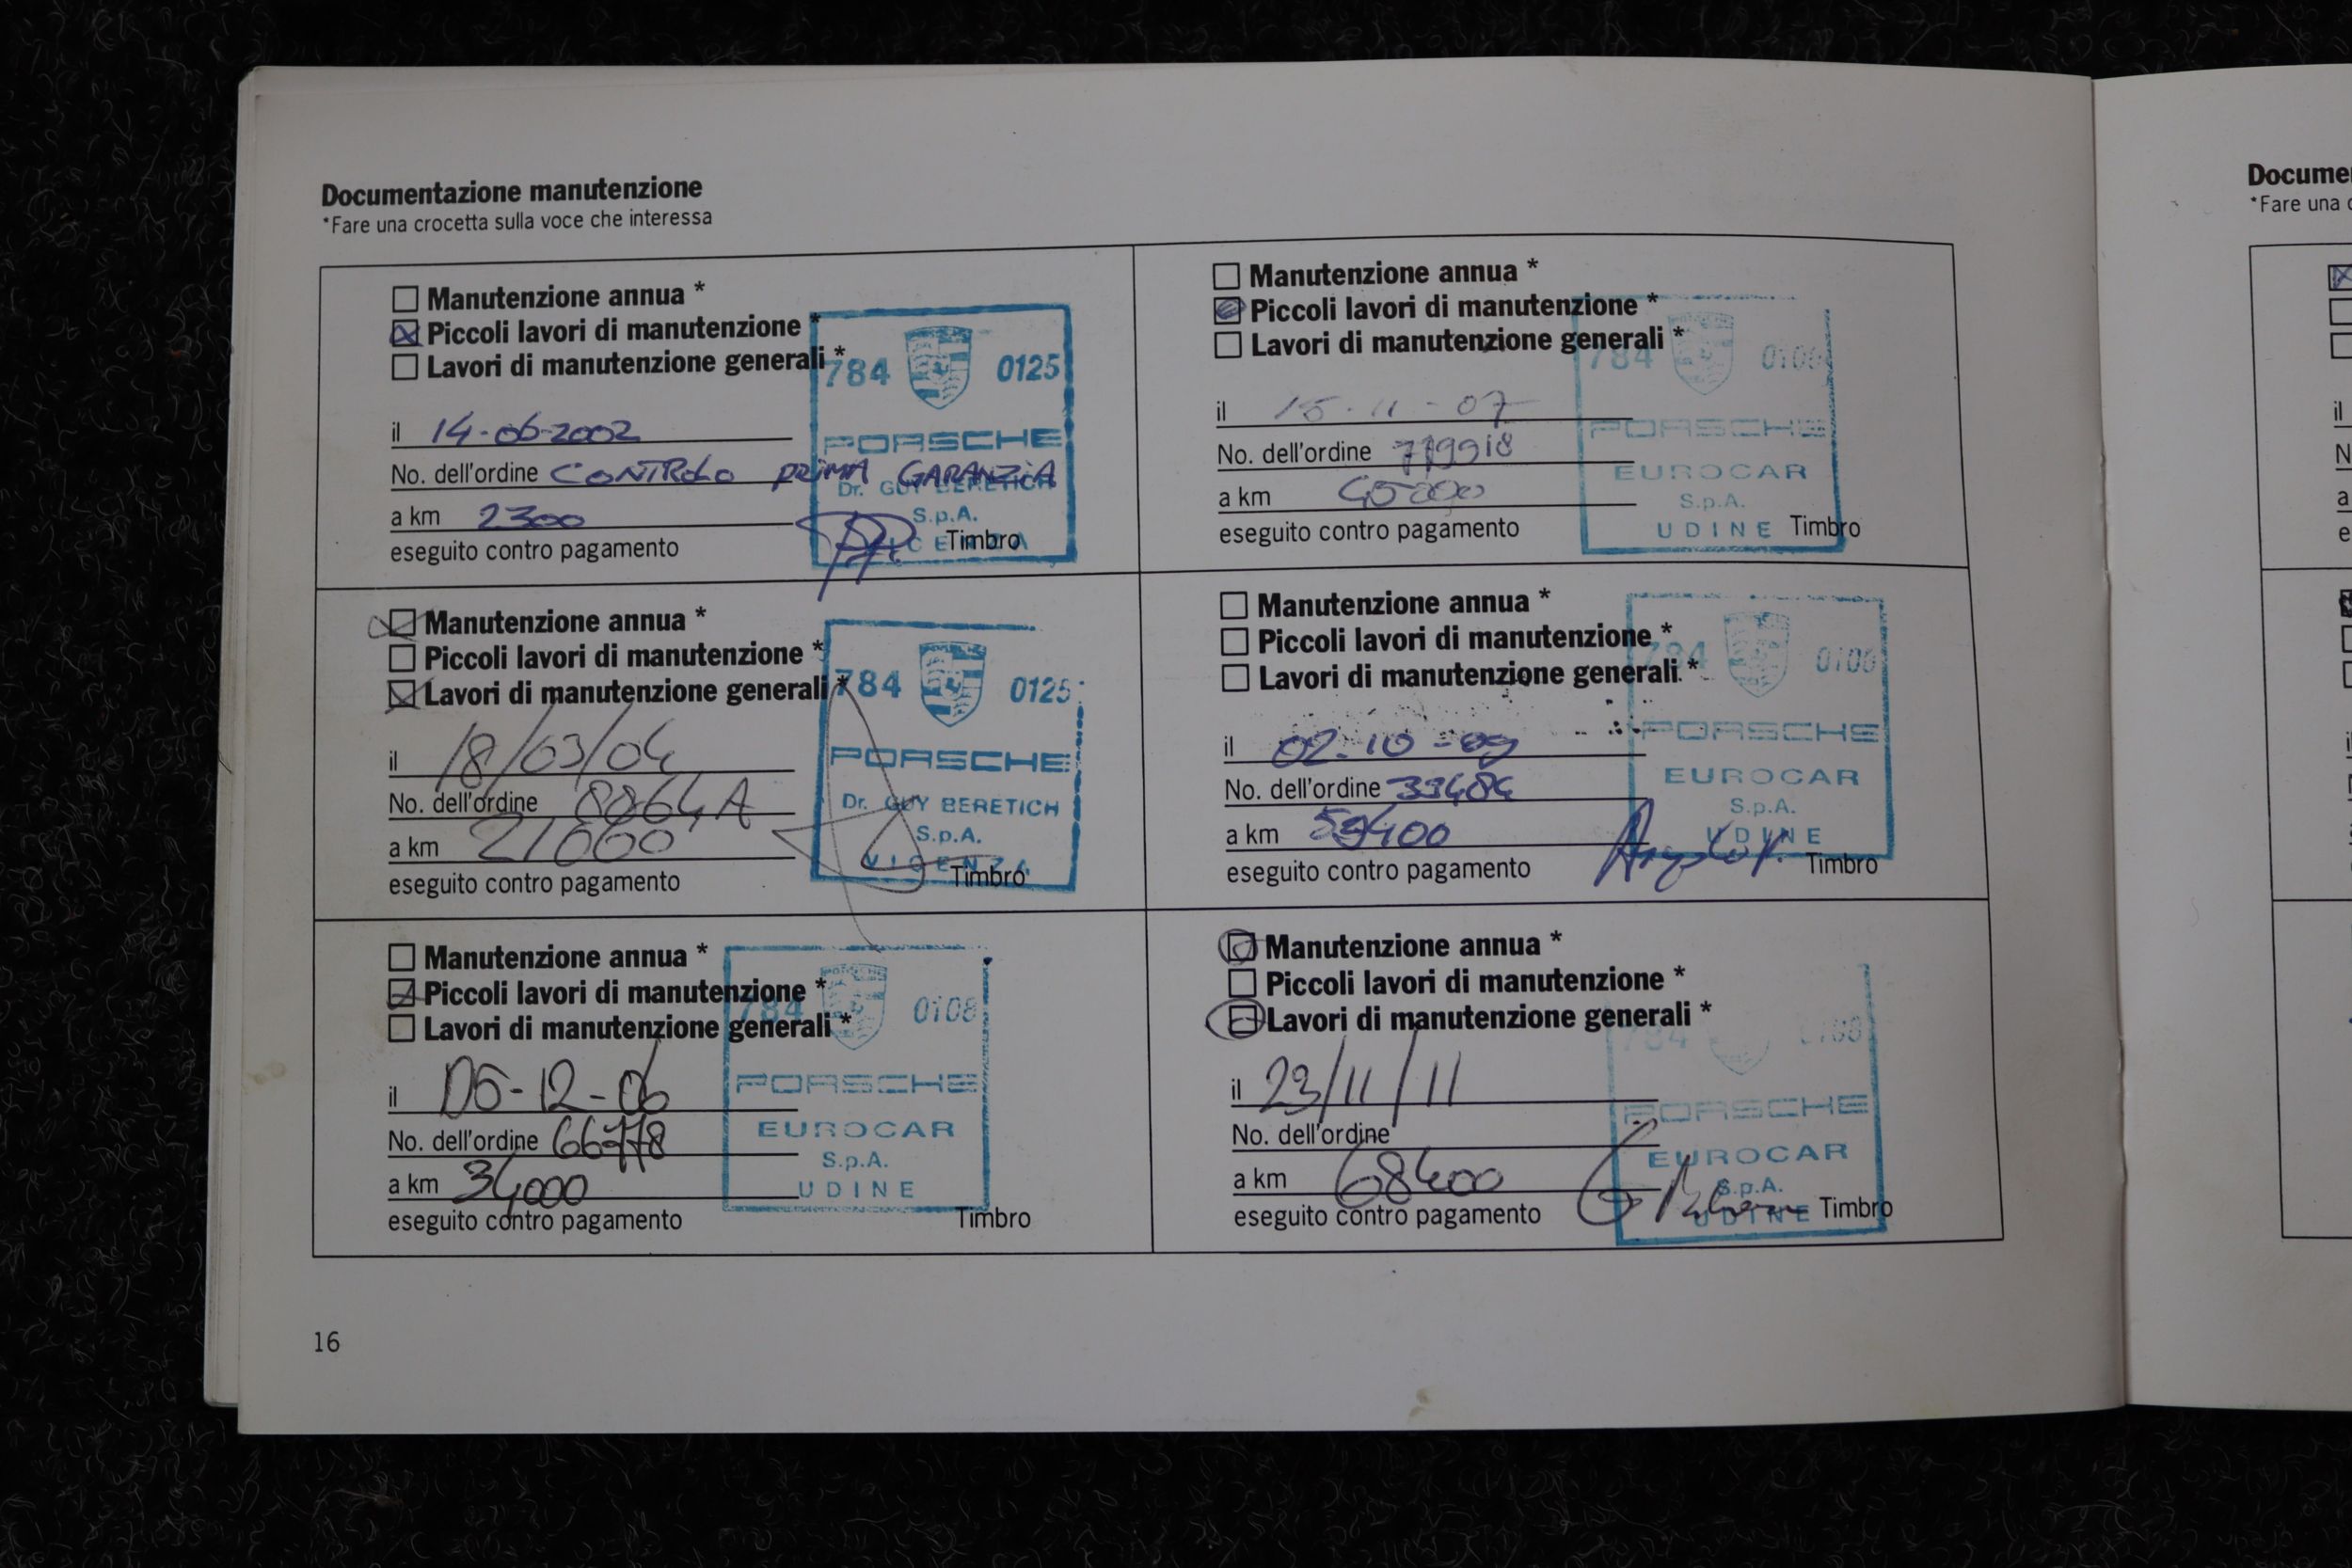 Documentazione manutenzione
*Fare una crocetta sulla voce che interessa
Manutenzione annua *
Piccoli lavori di manutenzione *
Lavori di manutenzione generali *
784 0125
PORSCHE
Dr. GUY BERETICH
S.p.A.
il 14-06-2002
No. dell'ordine CONTROLO PRIMA GARANZIA
a km 2300
eseguito contro pagamento
Timbro
Manutenzione annua *
Piccoli lavori di manutenzione *
Lavori di manutenzione generali *
784 0125
PORSCHE
Dr. GUY BERETICH
S.p.A.
VICENZA
il 18/03/04
No. dell'ordine 8864A
a km 21000
eseguito contro pagamento
Timbro
Manutenzione annua *
Piccoli lavori di manutenzione *
Lavori di manutenzione generali *
784 0108
PORSCHE
EUROCAR
S.p.A.
UDINE
il 05-12-06
No. dell'ordine
a km 34000
eseguito contro pagamento
Timbro
Manutenzione annua *
Piccoli lavori di manutenzione *
Lavori di manutenzione generali *
784
PORSCHE
EUROCAR
S.p.A.
UDINE
il 15-11-07
No. dell'ordine 719918
a km 45000
eseguito contro pagamento
Timbro
Manutenzione annua *
Piccoli lavori di manutenzione *
Lavori di manutenzione generali *
784
PORSCHE
EUROCAR
S.p.A.
UDINE
il 02-10-09
No. dell'ordine 33484
a km 59400
eseguito contro pagamento
Timbro
Manutenzione annua *
Piccoli lavori di manutenzione *
Lavori di manutenzione generali *
784
PORSCHE
EUROCAR
S.p.A.
UDINE
il 23/11/11
No. dell'ordine
a km 68400
eseguito contro pagamento
Timbro
16
Docume
*Fare una